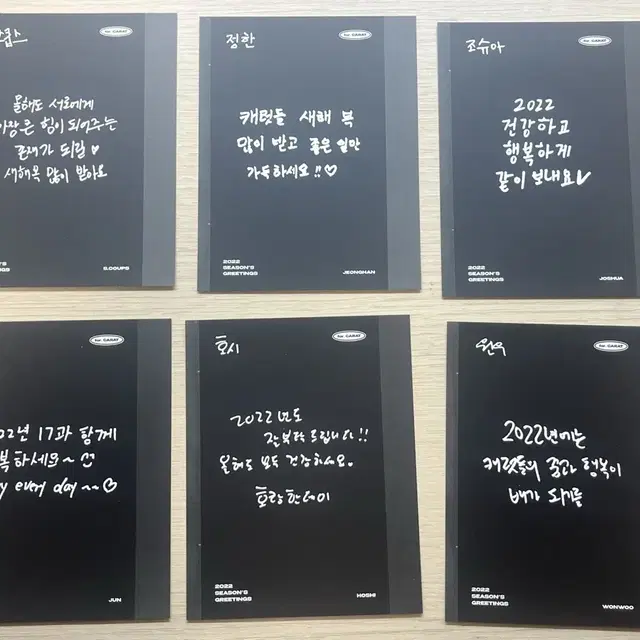 for. CARAT
올해도 서로에게
힘이 되어주는
존재가 되길 ♥
새해복 많이 받아요
S.COUPS
정한
for. CARAT
캐럿들 새해 복
많이 받고 좋은 일만
가득하세요!! ♡
2022
SEASON'S
GREETINGS
JEONGHAN
조슈아
for. CARAT
2022
건강하고
행복하게
같이 보내요
2022
SEASON'S
GREETINGS
JOSHUA
for. CARAT
년 17과 함께
복하세요~
every day ~~ ♡
JUN
호시
for. CARAT
2022년도
잘 부탁드립니다!!
올해도 모두 건강하세요.
호랑한데이
2022
SEASON'S
GREETINGS
HOSHI
원우
for. CARAT
2022년에는
캐럿들의 꿈과 행복이
배가 되기를
2022
SEASON'S
GREETINGS
WONWOO